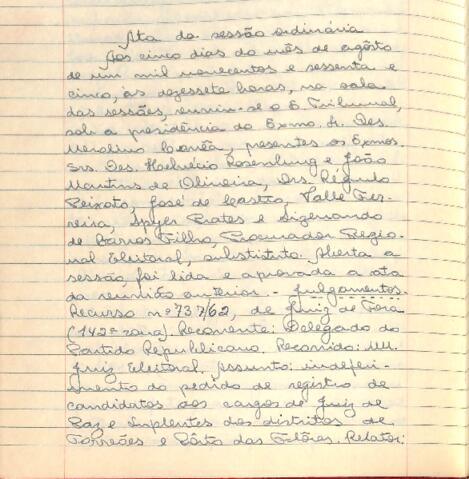 Ata da sessão ordinária
Aos cinco dias do mês de agôsto
de um mil novecentos e sessenta e
cinco, às dezessete horas, na sala
das sessões, reuniu-se o E. Tribunal,
sob a presidência do Exmo. Sr. Des.
Merolino Corrêa, presentes os Exmos.
Srs. Des. Helvécio Rosenburg e João
Martins de Oliveira, Drs. Régulo
Peixoto, José de Castro, Valle Fer-
reira, Spyer Prates e Sizenando
de Barros Filho, Procurador Regio-
nal Eleitoral, substituto. Aberta a
sessão, foi lida e aprovada a ata
da reunião anterior. - Julgamentos.
Recurso nº 737/62, de Juiz de Fora
(142ª zona). Recorrente: Delegado do
Partido Republicano. Recorrido: MM.
Juiz Eleitoral. Assunto: indeferi-
mento do pedido de registro de
candidatos aos cargos de Juiz de
Paz e Suplentes dos distritos de
Torreões e Pôrto das Flôres. Relator: